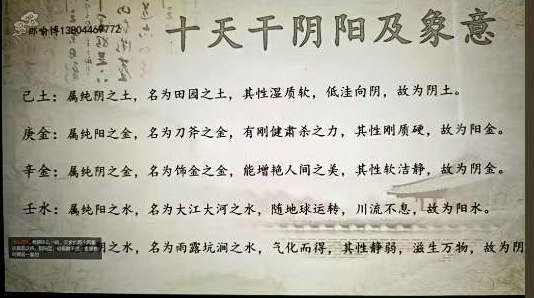 十天干阴阳及象意
邵喻博13804469772
己土：属纯阴之土，名为田园之土，其性湿质软，低洼向阴，故为阴土。
庚金：属纯阳之金，名为刀斧之金，有刚健肃杀之力，其性刚质硬，故为阳金。
辛金：属纯阴之金，名为饰金之金，能增艳人间之美，其性软洁静，故为阴金。
壬水：属纯阳之水，名为大江大河之水，随地球运转，川流不息，故为阳水。
阴之水，名为雨露坑涧之水，气化而得，其性静弱，滋生万物，故为阴